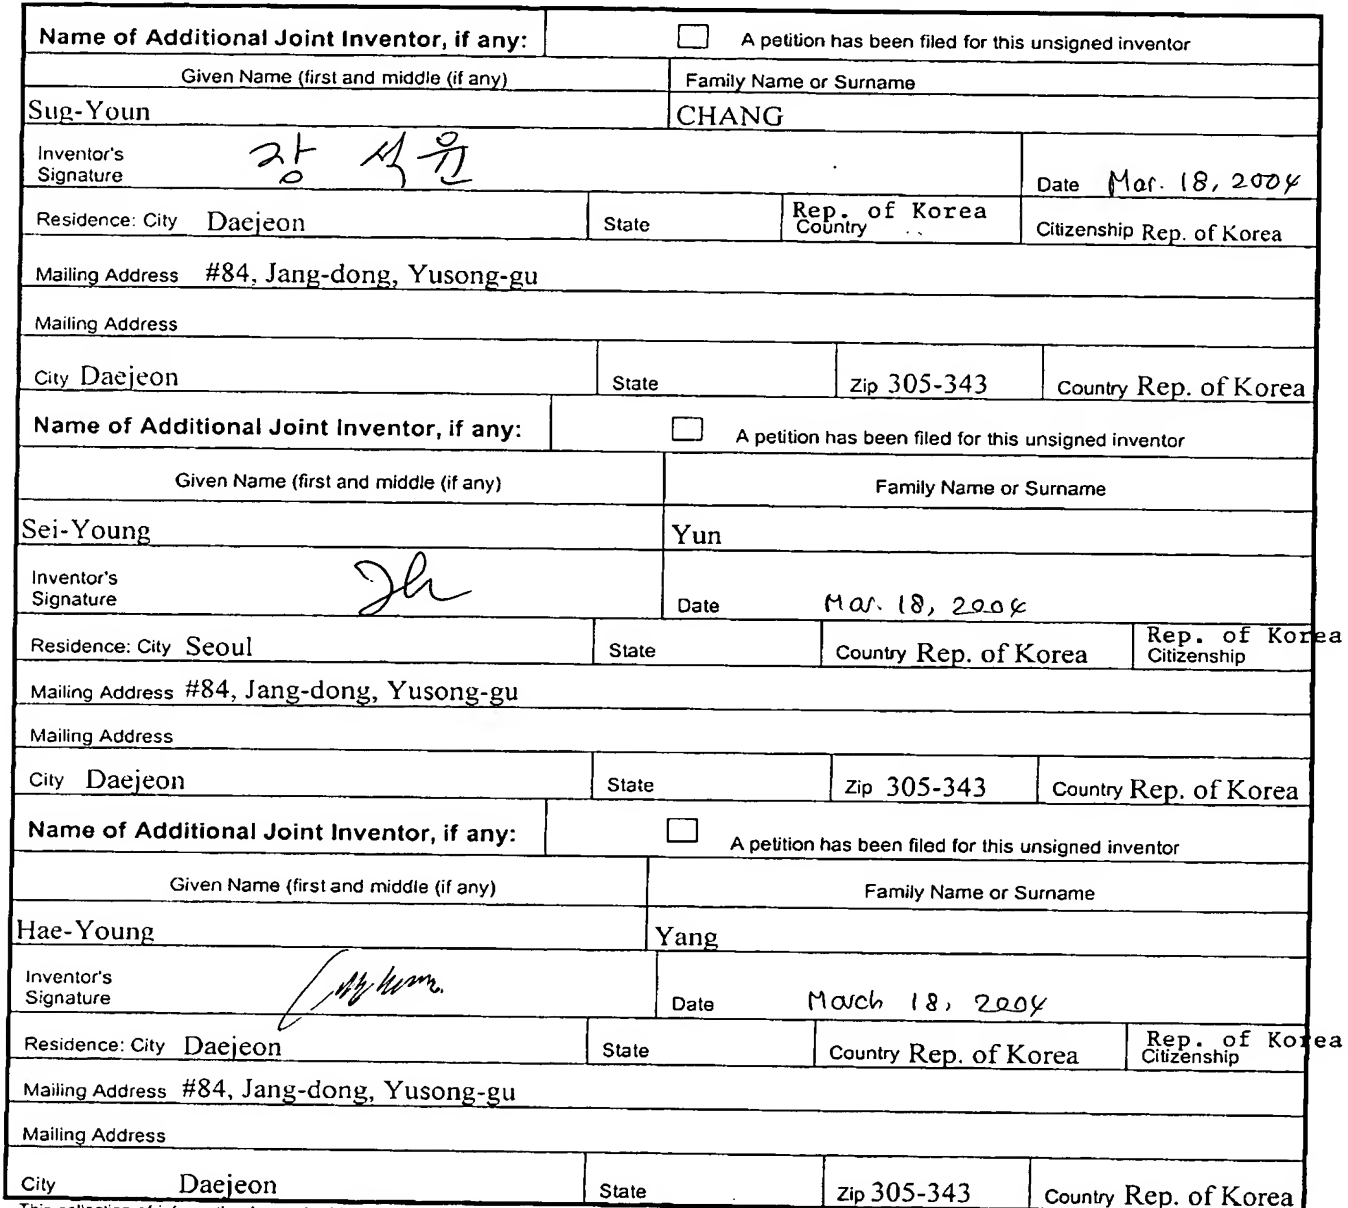 Name of Additional Joint Inventor, if any: A petition has been filed for this unsigned inventor
Given Name (first and middle (if any) Family Name or Surname
Sug-Youn CHANG
Inventor's
Signature 장 석윤 Date Mar. 18, 2004
Residence: City Daejeon State Rep. of Korea
Country Citizenship Rep. of Korea
Mailing Address #84, Jang-dong, Yusong-gu
Mailing Address
City Daejeon State Zip 305-343 Country Rep. of Korea
Name of Additional Joint Inventor, if any: A petition has been filed for this unsigned inventor
Given Name (first and middle (if any) Family Name or Surname
Sei-Young Yun
Inventor's
Signature Date Mar. 18, 2004
Residence: City Seoul State Country Rep. of Korea Rep. of Korea
Citizenship
Mailing Address #84, Jang-dong, Yusong-gu
Mailing Address
City Daejeon State Zip 305-343 Country Rep. of Korea
Name of Additional Joint Inventor, if any: A petition has been filed for this unsigned inventor
Given Name (first and middle (if any) Family Name or Surname
Hae-Young Yang
Inventor's
Signature Date March 18, 2004
Residence: City Daejeon State Country Rep. of Korea Rep. of Korea
Citizenship
Mailing Address #84, Jang-dong, Yusong-gu
Mailing Address
City Daejeon State Zip 305-343 Country Rep. of Korea